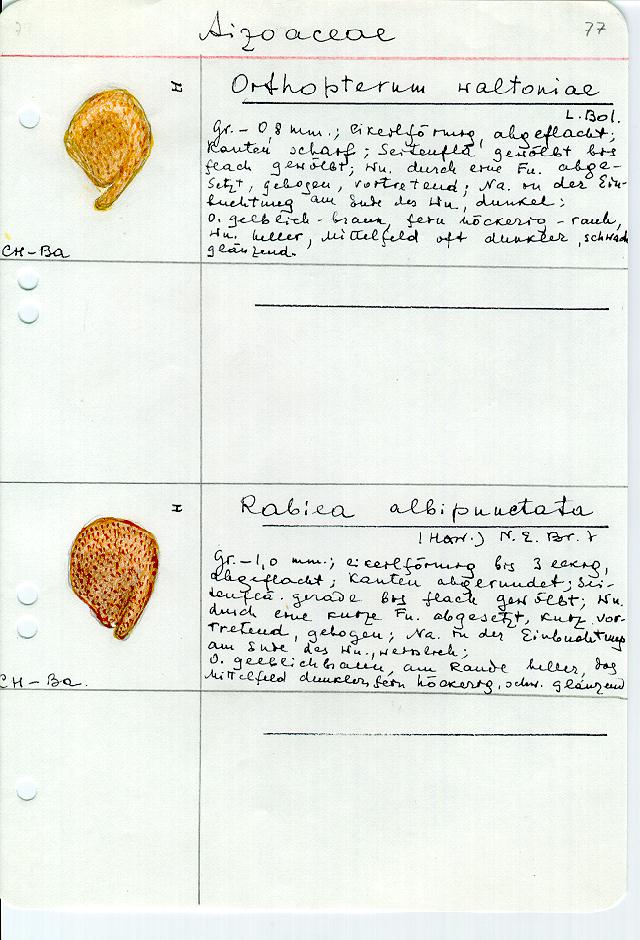 77
Aizoaceae
77
Orthopterum waltoniae
L. Bol.
Gr. – 0,8 mm.; eikeilförmig, abgeflacht;
Kanten scharf; Seitenflä. gewölbt bis
flach gewölbt; Wu. durch eine Fu. abge-
setzt, gebogen, vortretend; Na. in der Ein-
buchtung am Ende des Wu., dunkel;
O. gelblich-braun, fein höckerig-rauh,
Wu. heller, Mittelfeld oft dunkler, schwach
glänzend.
CH-Ba
Rabiea albipunctata
(Haw.) N. E. Br.
Gr. – 1,0 mm.; eikeilförmig bis 3 eckig,
abgeflacht; Kanten abgerundet; Sei-
tenflä. gerade bis flach gewölbt; Wu.
durch eine kurze Fu. abgesetzt, kurz vor-
tretend, gebogen; Na. in der Einbuchtung
am Ende des Wu., weisslich;
O. gelblichbraun, am Rande heller, das
Mittelfeld dunkler, fein höckerig, schw. glänzend
CH-Ba.